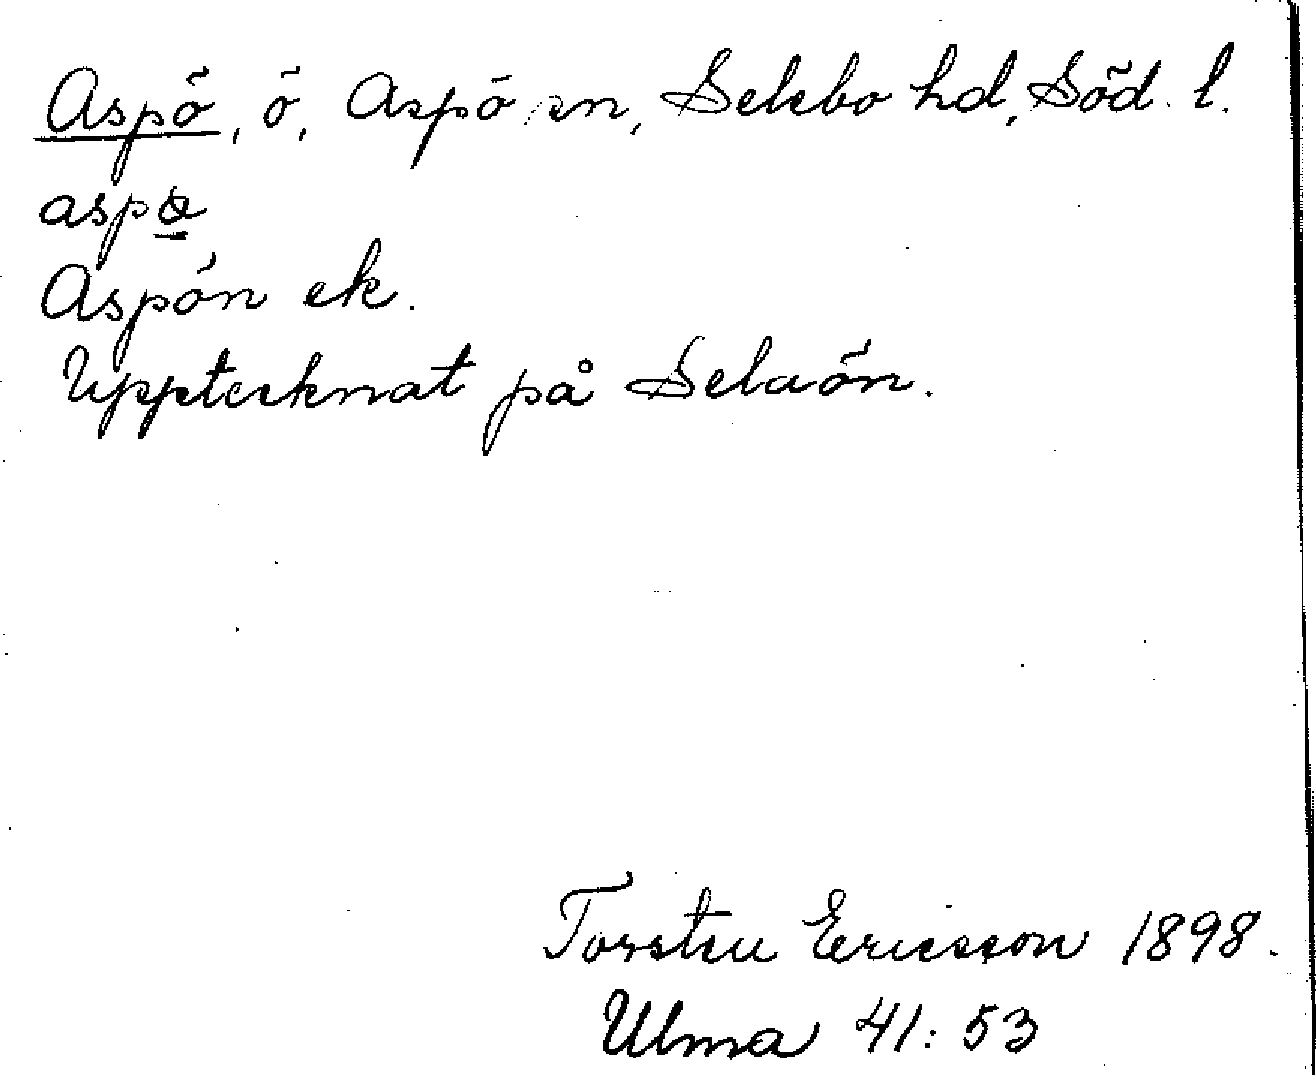 Aspö, ö, Aspö sn, Selebo hd, Söd. l.
aspø
Aspön ek.
Upptecknat på Selaön.
Torsten Ericsson 1898.
Ulma 41:53